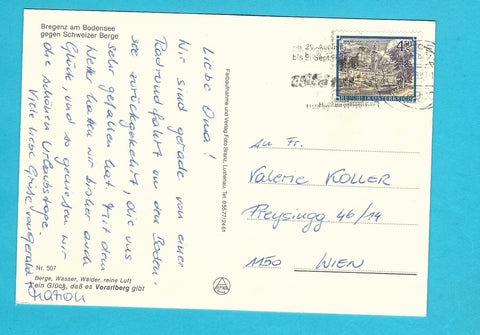 Bregenz am Bodensee
gegen Schweizer Berge
Liebe Oma!
Wir sind gerade von einer
Radrundfahrt um den Boden-
see zurückgekehrt, die uns
sehr gefallen hat. Mit dem
Wetter hatten wir bisher auch
Glück, und so geniessen wir
die schönen Urlaubstage.
Viele liebe Grüsse von Gerald
Marion
Nr. 507
Berge, Wasser, Wälder, reine Luft
ein Glück, daß es Vorarlberg gibt
Farbaufnahme und Verlag Foto Branz, Lustenau, Tel.
bis 
REPUBLIK ÖSTERREICH
An Fr.
Valerie KOLLER
Preysingg 46/14
1150 WIEN